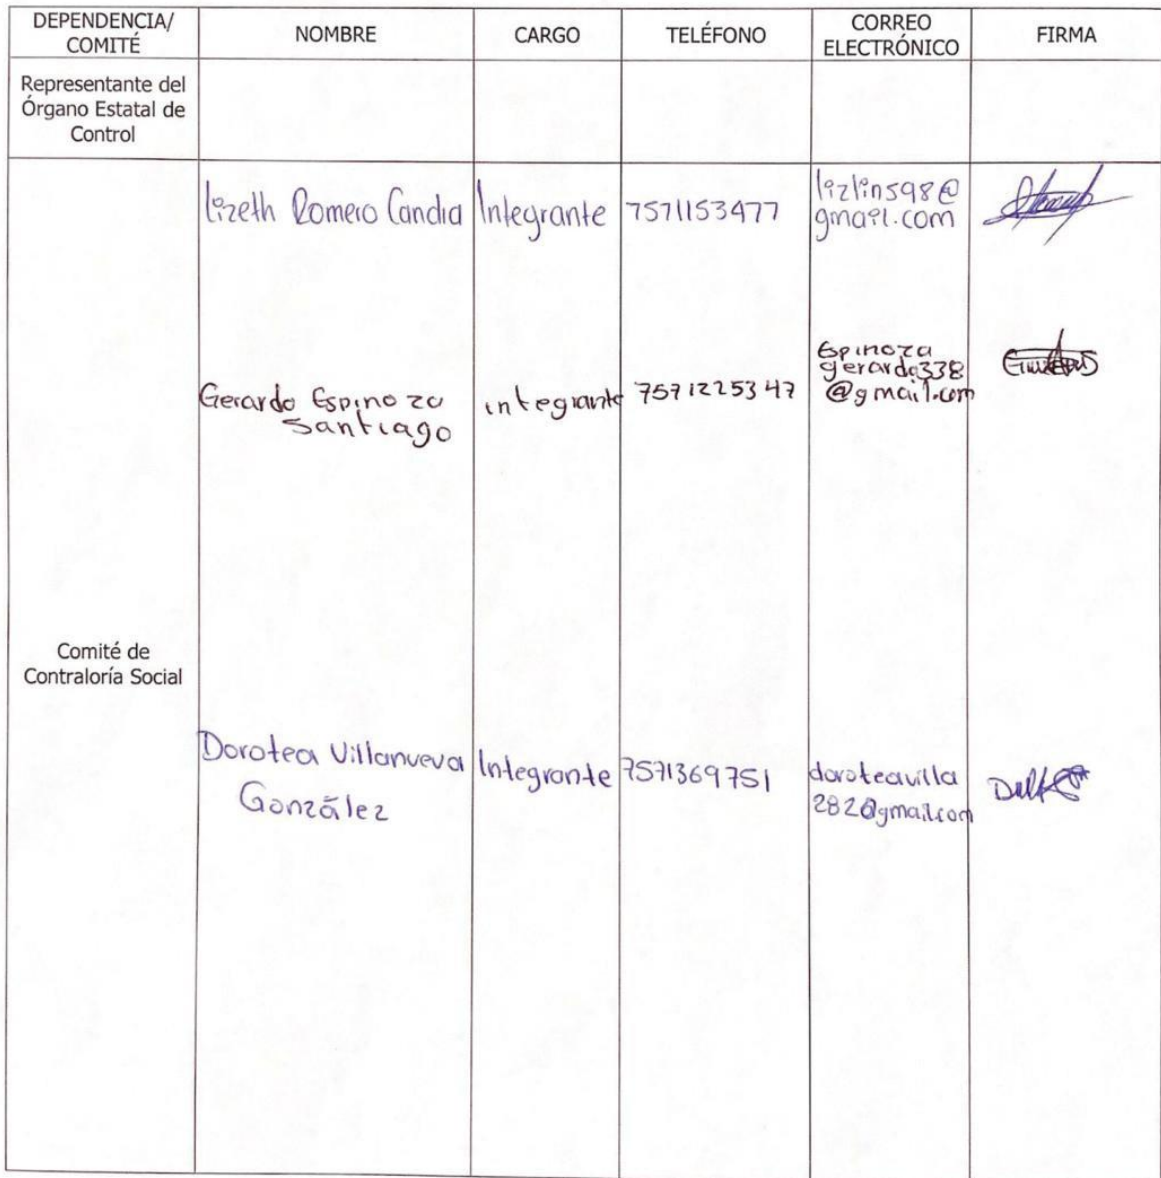 DEPENDENCIA/
COMITÉ
NOMBRE
CARGO
TELÉFONO
CORREO
ELECTRÓNICO
FIRMA
Representante del
Órgano Estatal de
Control
Comité de
Contraloría Social
lizeth Romero Candia
Integrante
7571153477
lizlin598@
gmail.com
Gerardo Espinoza
Santiago
integrante
7571225347
Espinoza
gerardo338
@gmail.com
Dorotea Villanueva
González
Integrante
7571369751
doroteavilla
282@gmail.com